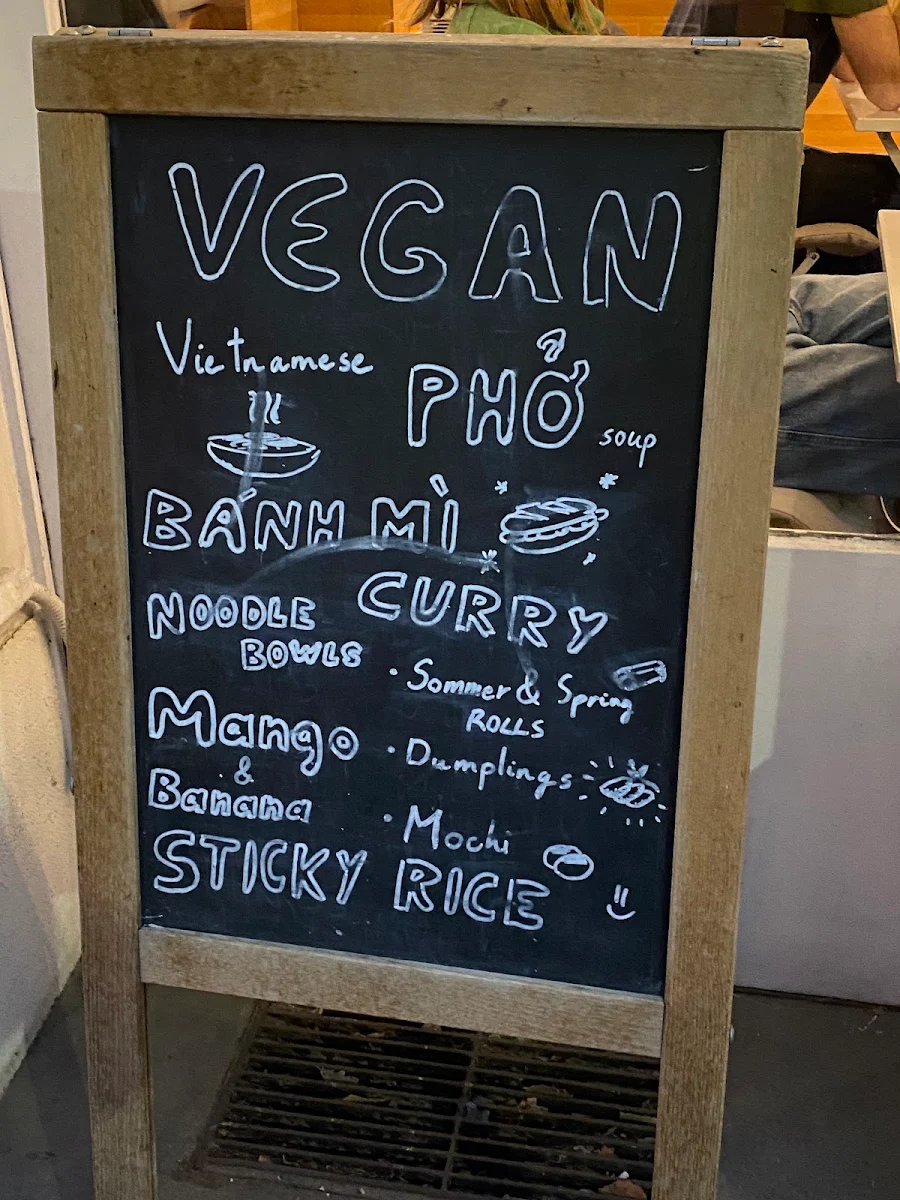 VEGAN
Vietnamese
PHỞ soup
BÁNH MÌ
CURRY
NOODLE
BOWLS
· Sommer & Spring
ROLLS
Mango
&
Banana
· Dumplings
· Mochi
STICKY RICE